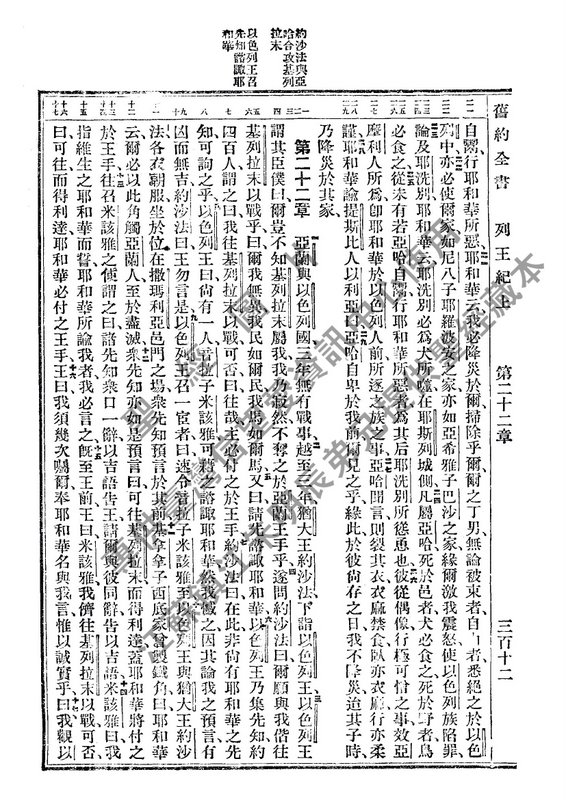 舊約全書 列王紀上 第二十二章 三百十二
自鬻行耶和華所惡耶和華云我必降災於爾掃除乎爾爾之丁男無論被束者自由者悉絕之於以色
列中亦必使爾家如尼八子耶羅波安之家亦如亞希雅子巴沙之家緣爾激我震怒使以色列族陷罪
論及耶洗別耶和華云耶洗別必爲犬所噬在耶斯列城側凡屬亞哈死於邑者犬必食之死於野者鳥
必食之從未有若亞哈自鬻行耶和華所惡者爲其后耶洗別所慫恿也彼從偶像行極可憎之事效亞
摩利人所爲卽耶和華於以色列人前所逐之族之事亞哈聞言則裂其衣衣麻禁食臥亦衣麻行亦柔
謹耶和華諭提斯比人以利亞曰亞哈自卑於我前爾見之乎緣此於彼尚存之日我不降災迨其子時
乃降災於其家
約沙法與亞
哈合攻基列
拉末
第二十二章 亞蘭與以色列國三年無有戰事越至三年猶大王約沙法下詣以色列王
謂其臣僕曰爾豈不知基列拉末屬我我乃寂然不奪之於亞蘭王手乎遂問約沙法曰爾願與我偕往
以色列王召
先知諮諏耶
和華
基列拉末以戰乎曰爾我無異我民如爾民我馬如爾馬又曰請先諮諏耶和華以色列王乃集先知約
四百人謂之曰我往基列拉末以戰可否曰往哉主必付之於王手約沙法曰在此非尚有耶和華之先
知可詢之乎以色列王曰尚有一人音拉子米該雅可藉之諮諏耶和華然我憾之因其論我之預言有
凶而無吉約沙法曰王勿言是以色列王召一宦者曰速令音拉子米該雅至以色列王與猶大王約沙
法各衣朝服坐於位在撒瑪利亞邑門之場衆先知預言於其前基拿拿子西底家曾製鐵角曰耶和華
云爾必以此角觸亞蘭人至於盡滅衆先知亦如是預言曰可往基列拉末而得利達蓋耶和華將付之
於王手往召米該雅之使謂之曰諸先知衆口一辭以吉語告王請爾與彼同辭告以吉語米該雅曰我
指維生之耶和華而誓耶和華所諭我者我必言之旣至王前王曰米該雅我儕往基列拉末以戰可否
曰可往而得利達耶和華必付之王手王曰我須幾次囑爾奉耶和華名與我言惟以誠實乎曰我觀以